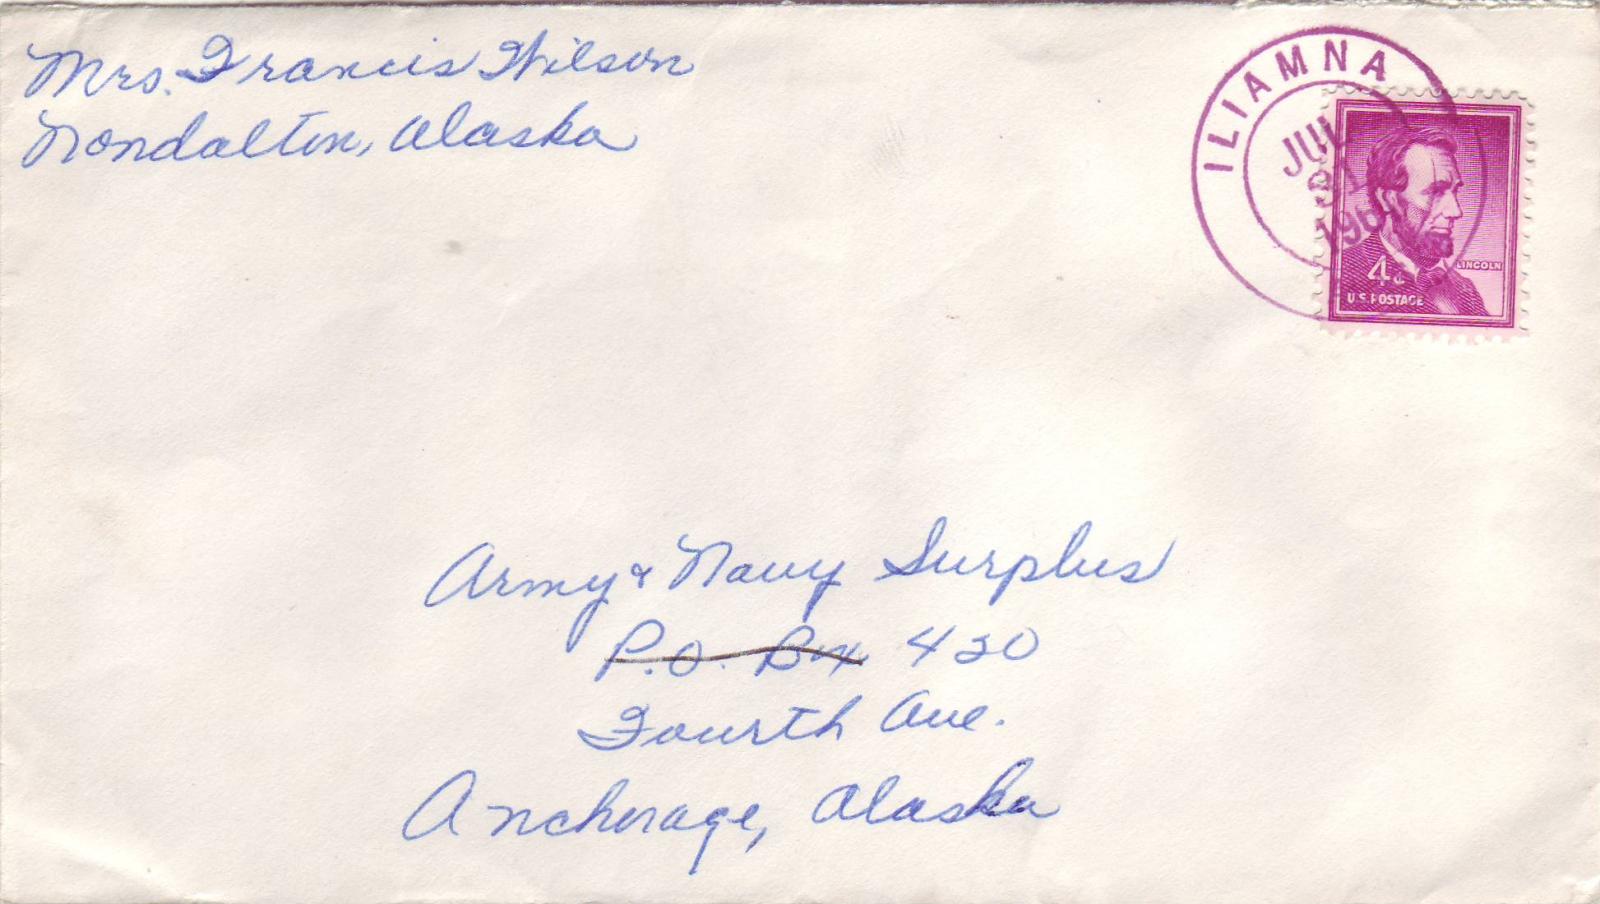 Mrs. Francis Wilson
Nondalton, Alaska
ILIAMNA
4¢
LINCOLN
U.S. POSTAGE
Army & Navy Surplus
P.O. Box 420
Fourth Ave.
Anchorage, Alaska